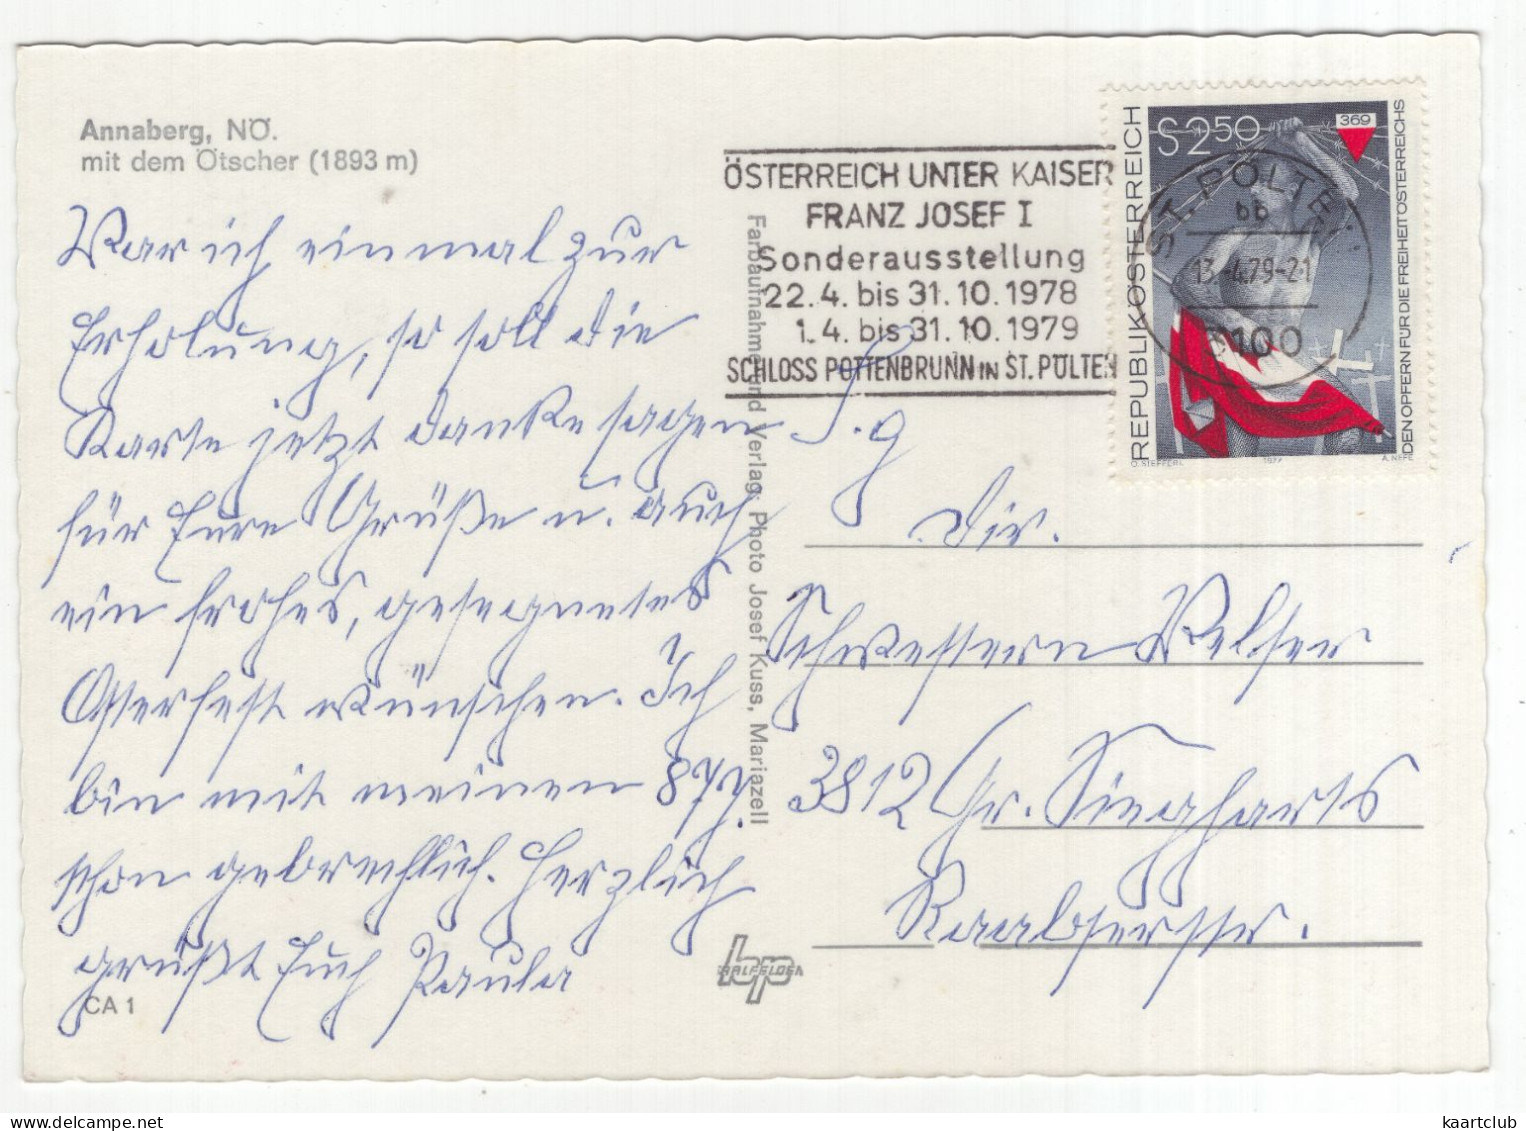 Annaberg, NÖ.
mit dem Ötscher (1893 m)
War ich einmal zur
Erholung, so soll die
Karte jetzt danke sagen
für Eure Grüße u. auch
ein frohes, gesegnetes
Osterfest wünschen. Ich
bin mit meinen 87 J.
schon gebrechlich. Herzlich
grüßt Euch Paula
CA 1
Farbaufnahme und Verlag: Photo Josef Kuss, Mariazell
ÖSTERREICH UNTER KAISER
FRANZ JOSEF I
Sonderausstellung
22.4. bis 31.10.1978
1.4. bis 31.10.1979
SCHLOSS POTTENBRUNN IN ST. PÖLTEN
REPUBLIK ÖSTERREICH
S 250
369
DEN OPFERN FÜR DIE FREIHEIT ÖSTERREICHS
1977
ST. PÖLTE
bb
13.-4.79-21
3100
Schwestern Welser
3812 Gr. Siegharts
Raabserstr.